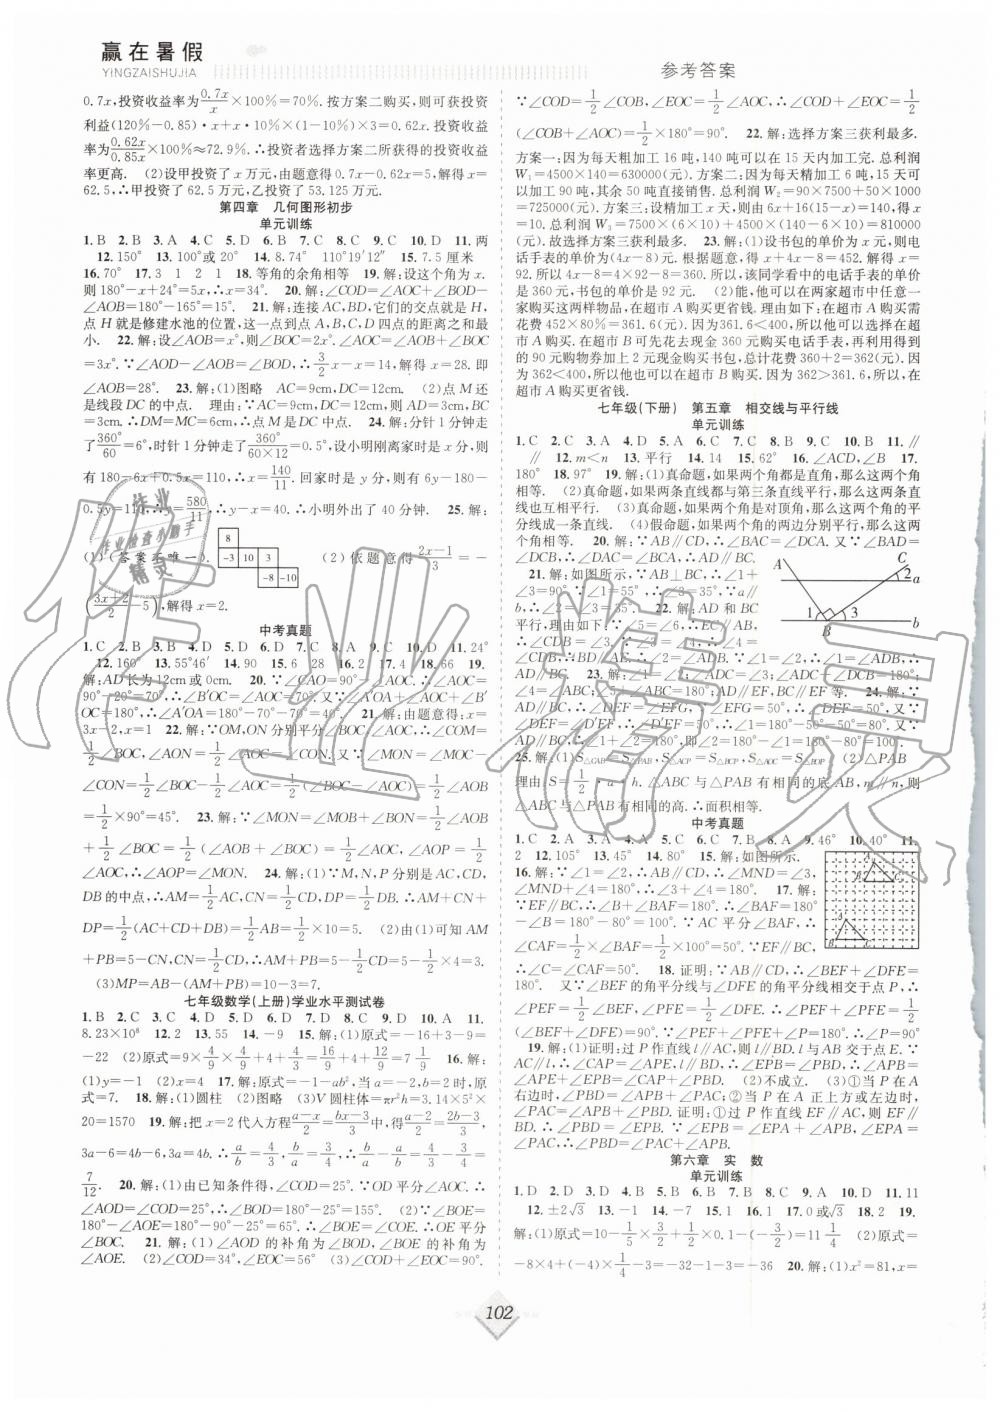 赢在暑假
YINGZAISHUJIA
参考答案
0.7x,投资收益率为0.7x/x×100%=70%. 按方案二购买,则可获投资
利益(120%-0.85)·x+x·10%×(1-10%)×3=0.62x. 投资收益
率为0.62x/0.85x×100%≈72.9%. ∴投资者选择方案二所获得的投资收益
率更高. (2)设甲投资了 x 万元,由题意得0.7x-0.62x=5,解得 x=
62.5,∴甲投资了 62.5 万元,乙投资了 53.125 万元.
第四章 几何图形初步
单元训练
1. B 2. B 3. A 4. C 5. D 6. B 7. C 8. C 9. C 10. D 11. 两
12. 150° 13. 100°或 20° 14. 8.74° 110°19′12″ 15. 7.5 厘米
16. 70° 17. 3 1 2 1 18. 等角的余角相等 19. 解:设这个角为 x.
则180°-x+24°=5x,∴x=34°. 20. 解:∠COD=∠AOC+∠BOD-
∠AOB=180°-165°=15°. 21. 解:连接 AC,BD,它们的交点就是 H,
点 H 就是修建水池的位置,这一点到点 A,B,C,D 四点的距离之和最
小. 22. 解:设∠AOB=x°,则∠BOC=2x°. ∴∠AOC=∠AOB+∠BOC
=3x°. ∵∠AOD-∠AOB=∠BOD,∴3/2x-x=14,解得 x=28. 即
∠AOB=28°. 23. 解:(1)图略 AC=9cm,DC=12cm. (2)点 M 还
是线段 DC 的中点. 理由:∵AC=9cm,DC=12cm,则 AD=3cm,BC
=3cm. ∴DM=MC=6cm,∴点 M 是 DC 中点. 24. 解:分针 1 分钟走
了360°/60=6°,时针 1 分钟走了360°/60×12=0.5°,设小明刚离家时是 x 分,
有 180-6x+0.5x=110,∴x=140/11. 回家时是 y 分,则有 6y-180-
0.5y=110,∴y=580/11. ∴y-x=40. ∴小明外出了 40 分钟. 25. 解:
(1)(答案不唯一) 8 -3 10 3 -8 -10 (2)依题意得2x-1/3=-
(3x+2/2-5),解得 x=2.
中考真题
1. C 2. B 3. C 4. B 5. D 6. D 7. C 8. B 9. C 10. D 11. 24°
12. 160° 13. 55°46′ 14. 90 15. 6 28 16. 2 17. 4 18. 66 19.
解:AD 长为 12cm 或 0cm. 20.
90°-20°=70°,∴∠B′OC=∠AOC=70°. 又∵∠A′OA+∠AOC+∠B′
OC=180°,∴∠A′OA=180°-70°-70°=40°. 21. 解:由题意得:x=
3x-2,x=1 22. ∵OM,ON 分别平分∠BOC,∠AOC,∴∠COM=
1/2∠BOC,∠AON=1/2∠AOC=∠CON. 又∵∠MON=∠MOC-
∠CON=1/2∠BOC-1/2∠AOC=1/2(∠BOC-∠AOC)=1/2∠AOB
=1/2×90°=45°. 23. 解:∵∠MON=∠MOB+∠BON=1/2∠AOB
+1/2∠BOC=1/2(∠AOB+∠BOC)=1/2∠AOC,∠AOP=1/2
∠AOC,∴∠AOP=∠MON. 24. 解:(1)∵M,N,P 分别是 AC,CD,
DB 的中点,∴AM=1/2AC,CN=1/2CD,DP=1/2DB. ∴AM+CN+
DP=1/2(AC+CD+DB)=1/2AB=1/2×10=5. (2)由(1)可知 AM
+PB=5-CN,CN=1/2CD,∴AM+PB=5-1/2CD=5-1/2×4=3.
(3)MP=AB-(AM+PB)=10-3=7.
七年级数学(上册)学业水平测试卷
1. B 2. B 3. C 4. D 5. D 6. D 7. C 8. D 9. A 10. A 11.
8.23×10⁸ 12. 2 13. 55 14. -9 15. 解:(1)原式=-16+3-9=
-22 (2)原式=9×4/9×4/9+4÷4/3=16/9+4×4/3+12/9=7 1/9 16. 解:
(1)y=-2 (2)x=4 17. 解:原式=-1-ab²,当 a=-2,b=2 时,原
式=7. 18. 解:(1)圆柱 (2)图略 (3)V 圆柱体=πr²h=3.14×5²×
20=1570 19. 解:把 x=2 代入方程a-x/2=bx-3/3中,得a-2/2=2b-3/3,
3a-6=4b-6,3a=4b,∴a/b=4/3,b/a=3/4,∴a/b-b/a=4/3-3/4=
7/12. 20. 解:(1)由已知条件得,∠COD=25°. ∵OD 平分∠AOC. ∴
∠AOD=∠COD=25°,∴∠BOD=180°-25°=155°. (2)∵∠BOE=
180°-∠AOE=180°-90°-25°=65°,∴∠BOE=∠COE. ∴OE 平分
∠BOC. 21. 解:(1)∠AOD 的补角为∠BOD,∠BOE 的补角为
∠AOE. (2)∠COD=34°,∠EOC=56° (3)∠COD+∠EOC=90°.
∵∠COD=1/2∠COB,∠EOC=1/2∠AOC,∴∠COD+∠EOC=1/2
(∠COB+∠AOC)=1/2×180°=90°. 22. 解:选择方案三获利最多.
方案一:因为每天粗加工 16 吨,140 吨可以在 15 天内加工完. 总利润
W₁=4500×140=630000(元). 方案二:因为每天精加工 6 吨,15 天可以
加工 90 吨,其余 50 吨直接销售. 总利润 W₂=90×7500+50×1000=
725000(元). 方案三:设精加工 x 天,则由 6x+16(15-x)=140,得 x
=10. 总利润 W₃=7500×(6×10)+4500×(140-6×10)=810000
(元). 故选择方案三获利最多. 23. 解:(1)设书包的单价为 x 元,则电
话手表的单价为(4x-8)元. 根据题意,得 x+4x-8=452. 解得 x=
92. 所以 4x-8=4×92-8=360. 所以,该同学看中的电话手表的单价
是 360 元,书包的单价是 92 元. (2)能,他可以在两家超市中任意一
家购买这两样物品,在超市 A 购买更省钱. 理由如下:在超市 A 购买需
花费 452×80%=361.6(元). 因为361.6<400,所以他可以选择在超
市 A 购买. 在超市 B 可先花去现金 360 元购买电话手表,再利用得到
的 90 元购物券加上 2 元现金购买书包,总计花费 360+2=362(元). 因
为 362<400,所以他也可以在超市 B 购买. 因为 362>361.6,所以在
超市 A 购买更省钱.
七年级(下册) 第五章 相交线与平行线
单元训练
1. C 2. C 3. A 4. D 5. A 6. D 7. C 8. B 9. C 10. B 11. ∥
∥ 12. m<n 13. 平行 14. 14 15. 62° 16. ∠ACD,∠B 17.
180° 18. 97° 19. 解:(1)真命题,如果两个角都是直角,那么这两个角
相等. (2)真命题,如果两条直线都与第三条直线平行,那么这两条直
线也互相平行. (3)真命题,如果两个角是对顶角,那么这两个角的平
分线成一条直线. (4)假命题,如果两个角的两边分别平行,那么这两
个角相等. 20. 解:∵AB∥CD,∴∠BAC=∠DCA. 又∵∠BAD=
∠DCB,∴∠DAC=∠BCA,∴AD∥BC.
21. 解:如图所示,∵AB⊥BC,∴∠1+
∠3=90°. ∵∠1=55°,∴∠3=35°. ∵a∥
b,∴∠2=∠3=35°. 22. 解:AD 和 BC
平行,理由如下:∵∠5=∠6,∴CE∥AB,
∴∠CDB=∠3,∵∠3=∠4,∴∠4=
∠CDB,∴BD∥AM,∴∠2=∠ADB. ∵∠1=∠2,∴∠1=∠ADB,∴
AD∥BC. 23. 解:∠1=∠2;∠3=∠B;∠ADC+∠DCB=180°;
∠4=∠ABC;∠ABC+∠BCD=180°;AD∥EF,BC∥EF 等. 24. 解:
∵AD∥BC,∴∠DEF=∠EFG,∠EFG=50°,∴∠DEF=50°. 又∵
∠DEF=∠D′EF,∴∠D′EF=50°,∴∠1=180°-50°-50°=80°. 又∵
AD∥BC,∴∠1+∠2=180°,即∠2=180°-∠1=180°-80°=100°.
25. 解:(1)S△CAB=S△PAB,S△ACP=S△BCP,S△AOC=S△BOP (2)△PAB
理由:S=1/2·a·h,△ABC 与△PAB 有相同的底 AB,m∥n,则
△ABC 与△PAB 有相同的高. ∴面积相等.
中考真题
1. C 2. A 3. B 4. C 5. D 6. D 7. B 8. A 9. 46° 10. 40° 11.
2 12. 105° 13. 45° 14. 80° 15. 解:如图所示.
16. 解:∵∠1=∠2,∴AB∥CD. ∴∠MND=∠3,
∠MND+∠4=180°,∴∠3+∠4=180°. 17. 解:
∵EF∥BC,∴∠B+∠BAF=180°. ∴∠BAF=180°
-∠B=180°-80°=100°. ∵AC 平分∠BAF,∴
∠CAF=1/2∠BAF=1/2×100°=50°. ∵EF∥BC,
∴∠C=∠CAF=50°. 18. 证明:∵AB∥CD,∴∠BEF+∠DFE=
180°. 又∵∠BEF 的角平分线与∠DFE 的角平分线相交于点 P,∴
∠PEF=1/2∠BEF,∠PFE=1/2∠DFE,∴∠PEF+∠PFE=1/2
(∠BEF+∠DFE)=90°. ∵∠PEF+∠PFE+∠P=180°,∴∠P=90°
19. 解:(1)证明:过 P 作直线 l∥AC,则 l∥BD. l 与 AB 交于点 E. ∵
AC∥l,∴∠CAP=∠APE,l∥BD,∴∠EPB=∠PBD. ∵∠APB=
∠APE+∠EPB=∠CAP+∠PBD. (2)不成立. (3)①当 P 在 A
右边时,∠PBD=∠APB+∠PAC;②当 P 在 A 正上方或左边时,
∠PAC=∠APB+∠PBD. 证明:①过 P 作直线 EF∥AC,则 EF∥
BD. ∴∠PBD=∠EPB. ∵∠EPB=∠EPA+∠APB,∠EPA=
∠PAC,∴∠PBD=∠PAC+∠APB.
第六章 实 数
单元训练
1. C 2. D 3. B 4. C 5. B 6. D 7. D 8. C 9. A 10. D 11. 11
12. ±2√3 13. -1/4 14. -7 15. 1 16. 1 17. 0 或√3 18. 2 19.
解:(1)原式=10-1/5×3/2+1/2×0.1-(-3/2)=11 1/4 (2)原式=
-8×4+(-4)×1/4-3=-32-1-3=-36 20. 解:(1)x²=81,x=
A
C
2
a
1
3
B
b
102